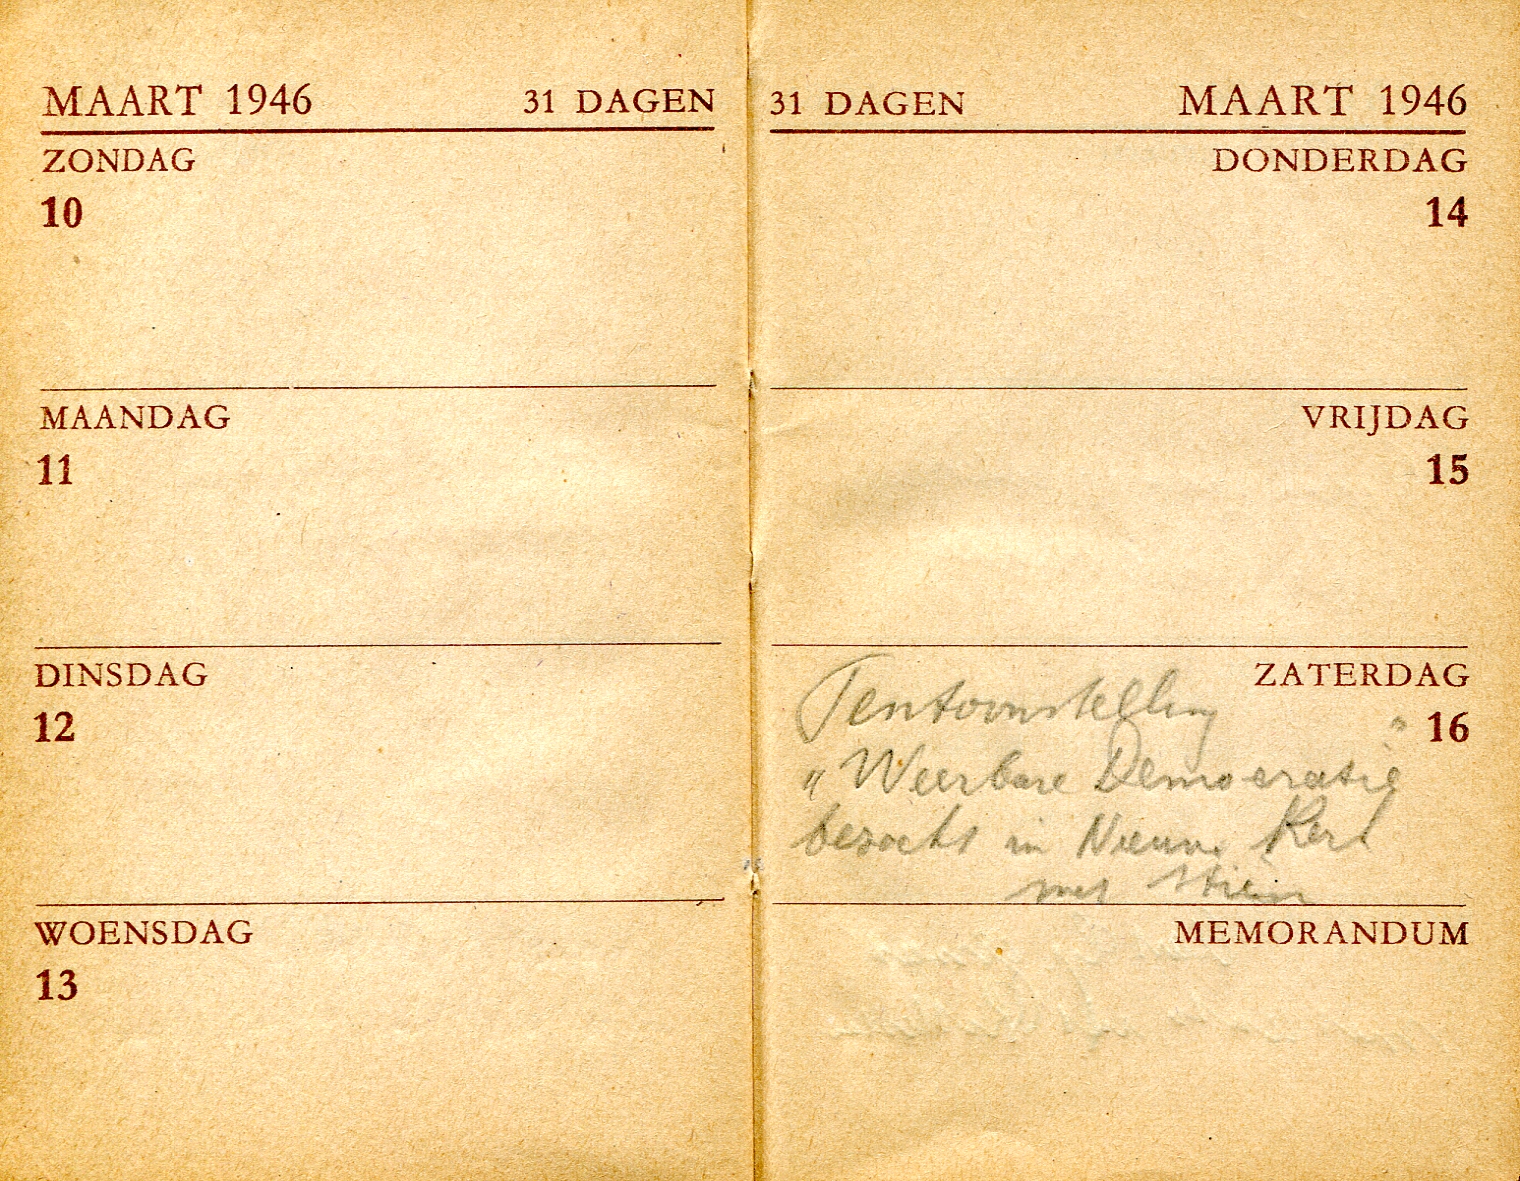 MAART 1946 31 DAGEN
ZONDAG
10
MAANDAG
11
DINSDAG
12
WOENSDAG
13
31 DAGEN MAART 1946
DONDERDAG
14
VRIJDAG
15
ZATERDAG
16
Tentoonstelling
"Weerbare Democratie"
bezocht in Nieuwe Kerk
met Stien
MEMORANDUM